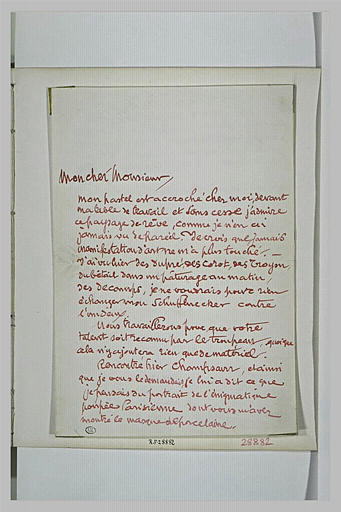 Mon cher Monsieur,
mon pastel est accroché chez moi, devant
ma table de travail et sans cesse j'admire
ce paysage de rêve, comme je n'en ai
jamais vu de pareil. Je crois que jamais
manifestation d'art ne m'a plus touché. —
J'ai vu hier des Dupré, des Corot, des Troyon,
du bétail dans un pâturage au matin,
des Decamps, je ne voudrais pour rien
échanger mon Schuffenecker contre
l'un d'eux.
Nous travaillerons pour que votre
talent soit reconnu par le troupeau, quoique
cela n'y ajoutera rien que de matériel.
Rencontré hier Champsaur, et ainsi
que je vous le demandais je lui a dit ce que
je pensais du portrait de l'énigmatique
poupée Parisienne dont vous m'avez
montré le masque de porcelaine.
R.F. 28882
28882